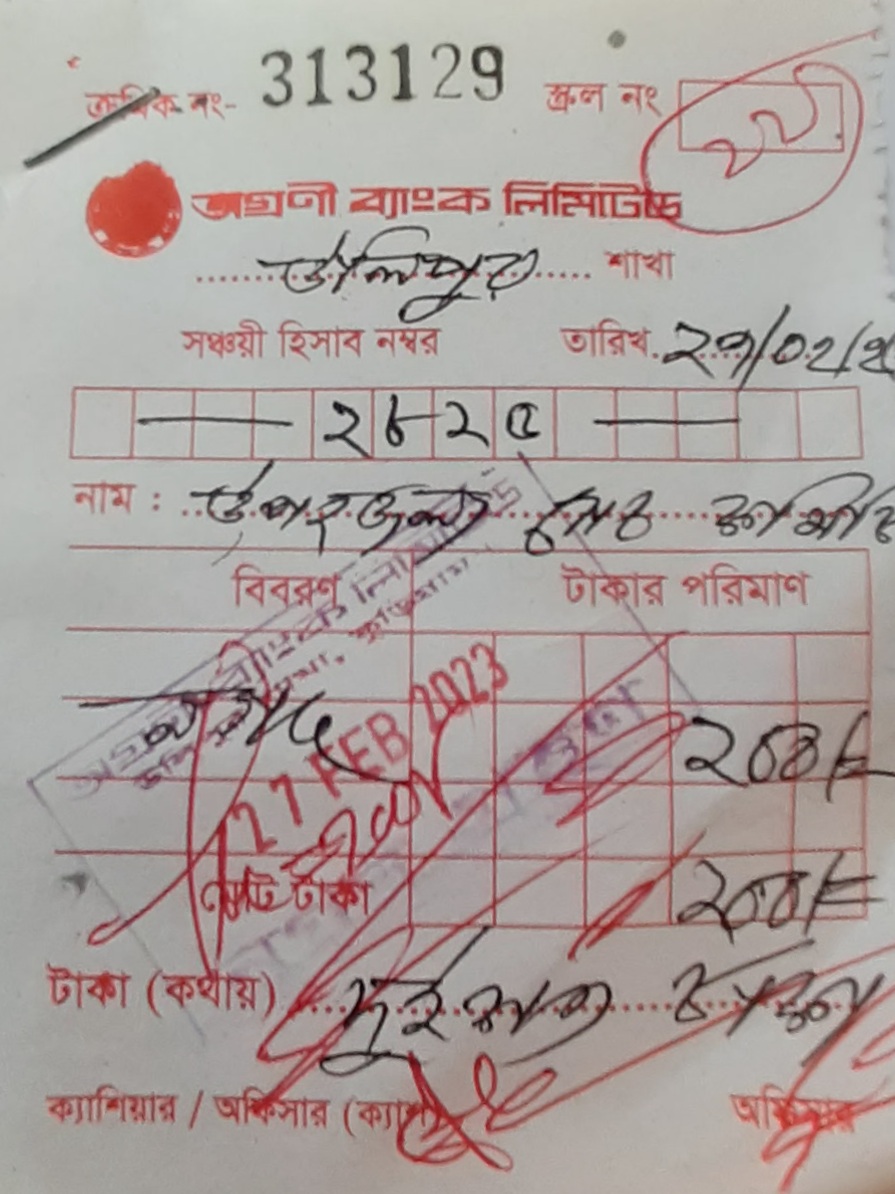 ক্রমিক নং- 313129 স্ক্রল নং
অগ্রণী ব্যাংক লিমিটেড
উলিপুর শাখা
সঞ্চয়ী হিসাব নম্বর তারিখ ২৭/০২/২
২৮২৫
নাম :
বিবরণ টাকার পরিমাণ
নগদ ২০০/=
27 FEB 2023
মোট টাকা ২০০/=
টাকা (কথায়) দুইশত টাকা
ক্যাশিয়ার / অফিসার (ক্যাশ) অফিসার